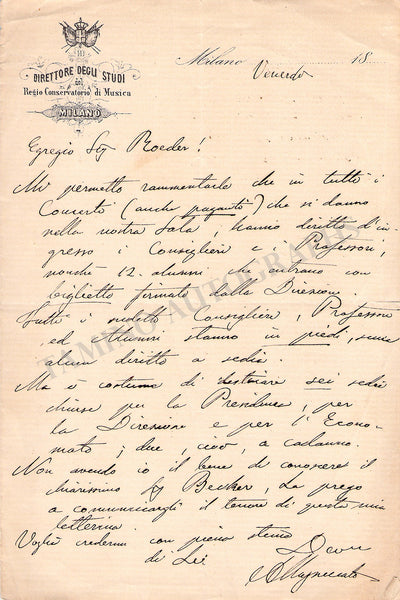 IL
DIRETTORE DEGLI STUDI
DEL
Regio Conservatorio di Musica
MILANO
Milano Venerdì 18
Egregio Sig Roeder!
Mi permetto rammentarle che in tutti i
Concerti (anche paganti) che si danno
nella nostra Sala, hanno diritto d'in-
gresso i Consiglieri e i Professori,
nonchè 12 alunni che entrano con
biglietto firmato dalla Direzione.
Tutti i suddetti Consiglieri, Professori
ed Alunni stanno in piedi, senza
alcun diritto a sedia.
Ma è costume di sei sedie
chiuse per la Presidenza, per
la Direzione e per l'Econo-
mato; due, cioè, a cadauno.
Non avendo io il bene di conoscere il
chiarissimo Sig Becker, La prego
a comunicargli il tenore di questa mia
letterina.
Voglia credermi con piena stima
di Lei
Devmo
AMazzucato
TAMINO AUTOGRAPHS